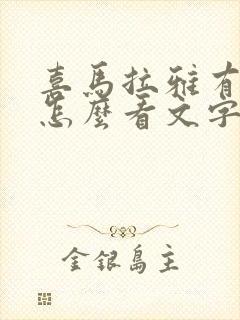 喜馬拉雅有
怎麼看文字
金銀島主